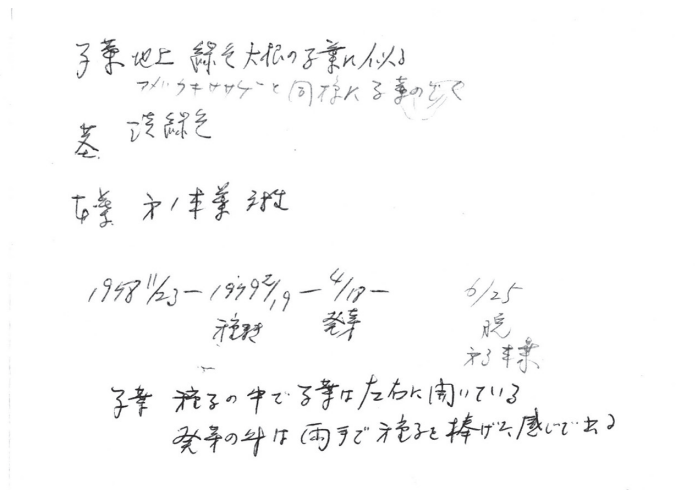 子葉 地上 緑色 大根の子葉に似る
アメリカキササゲと同様に子葉の
茎 淡緑色
本葉 才1本葉 対生
1958 11/23 — 1959 2/19 — 4/18 — 6/25
種蒔 発芽 脱
才3本葉
子葉 種子の中で子葉は左右に開いている
発芽の時は両手で種子を捧げた感じで出る